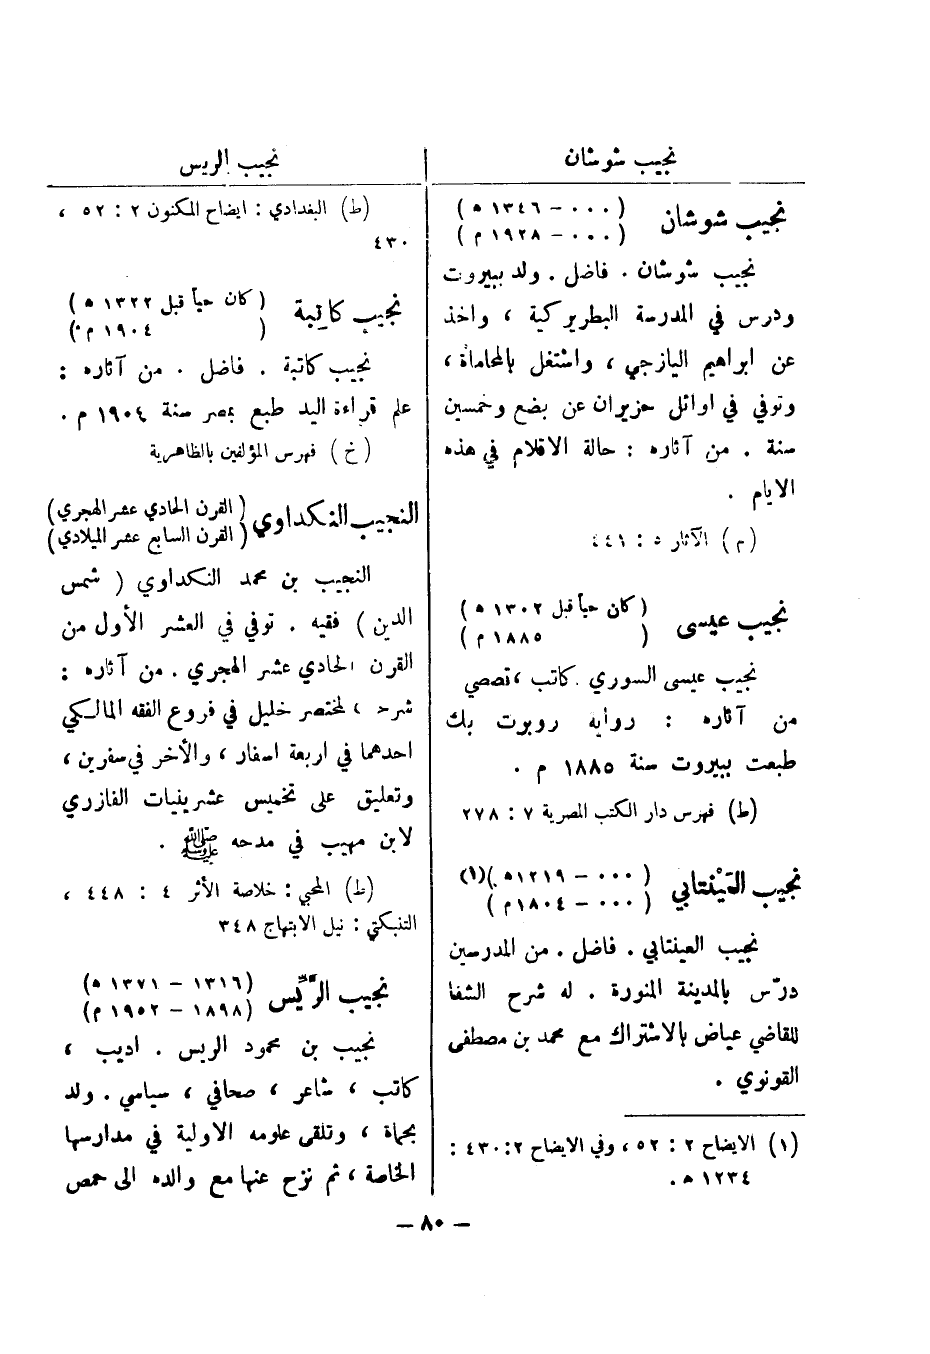 نجيب شوشان
نجيب شوشان
( ٠٠٠ – ١٣٤٦ ه )
( ٠٠٠ – ١٩٢٨ م )
نجيب شوشان . فاضل . ولد ببيروت
ودرس في المدرسة البطريركية ، واخذ
عن ابراهيم اليازجي ، واشتغل بالمحاماة ،
وتوفي في اوائل حزيران عن بضع وخمسين
سنة . من آثاره : حالة الاقلام في هذه
الايام .
( م ) الآثار ٥ : ٤٤١
نجيب عيسى
( كان حياً قبل ١٣٠٢ ه )
( ١٨٨٥ م )
نجيب عيسى السوري . كاتب ، قصصي
من آثاره : رواية روبرت بك
طبعت ببيروت سنة ١٨٨٥ م .
(ط) فهرس دار الكتب المصرية ٧ : ٢٧٨
نجيب العَيْنتابي
( ٠٠٠ – ١٢١٩ ه )(١)
( ٠٠٠ – ١٨٠٤ م )
نجيب العينتابي . فاضل . من المدرسين
درّس بالمدينة المنورة . له شرح الشفا
للقاضي عياض بالاشتراك مع محمد بن مصطفى
القونوي .
(١) الايضاح ٢ : ٥٢ ، وفي الايضاح ٢ : ٤٣٠ :
١٢٣٤ ه .
نجيب الريس
(ط) البغدادي : ايضاح المكنون ٢ : ٥٢ ،
٤٣٠
نجيب كاتبة
( كان حياً قبل ١٣٢٢ ه )
( ١٩٠٤ م )
نجيب كاتبة . فاضل . من آثاره :
علم قراءة اليد طبع بمصر سنة ١٩٠٤ م .
( خ ) فهرس المؤلفين بالظاهرية
النجيب النكداوي
( القرن الحادي عشر الهجري )
( القرن السابع عشر الميلادي )
النجيب بن محمد النكداوي ( شمس
الدين ) فقيه . توفي في العشر الأول من
القرن الحادي عشر الهجري . من آثاره :
شرحان لمختصر خليل في فروع الفقه المالكي
احدهما في اربعة اسفار ، والأخر في سفرين ،
وتعليق على تخميس عشرينيات الفازازي
لابن مهيب في مدحه ﷺ .
(ط) المحبي : خلاصة الأثر ٤ : ٤٤٨ ،
التنبكتي : نيل الابتهاج ٣٤٨
نجيب الريّس
(١٣١٦ – ١٣٧١ ه )
(١٨٩٨ – ١٩٥٢ م )
نجيب بن محمود الريس . اديب ،
كاتب ، شاعر ، صحافي ، سياسي . ولد
بحماة ، وتلقى علومه الاولية في مدارسها
الخاصة ، ثم نزح عنها مع والده الى حمص
– ٨٠ –